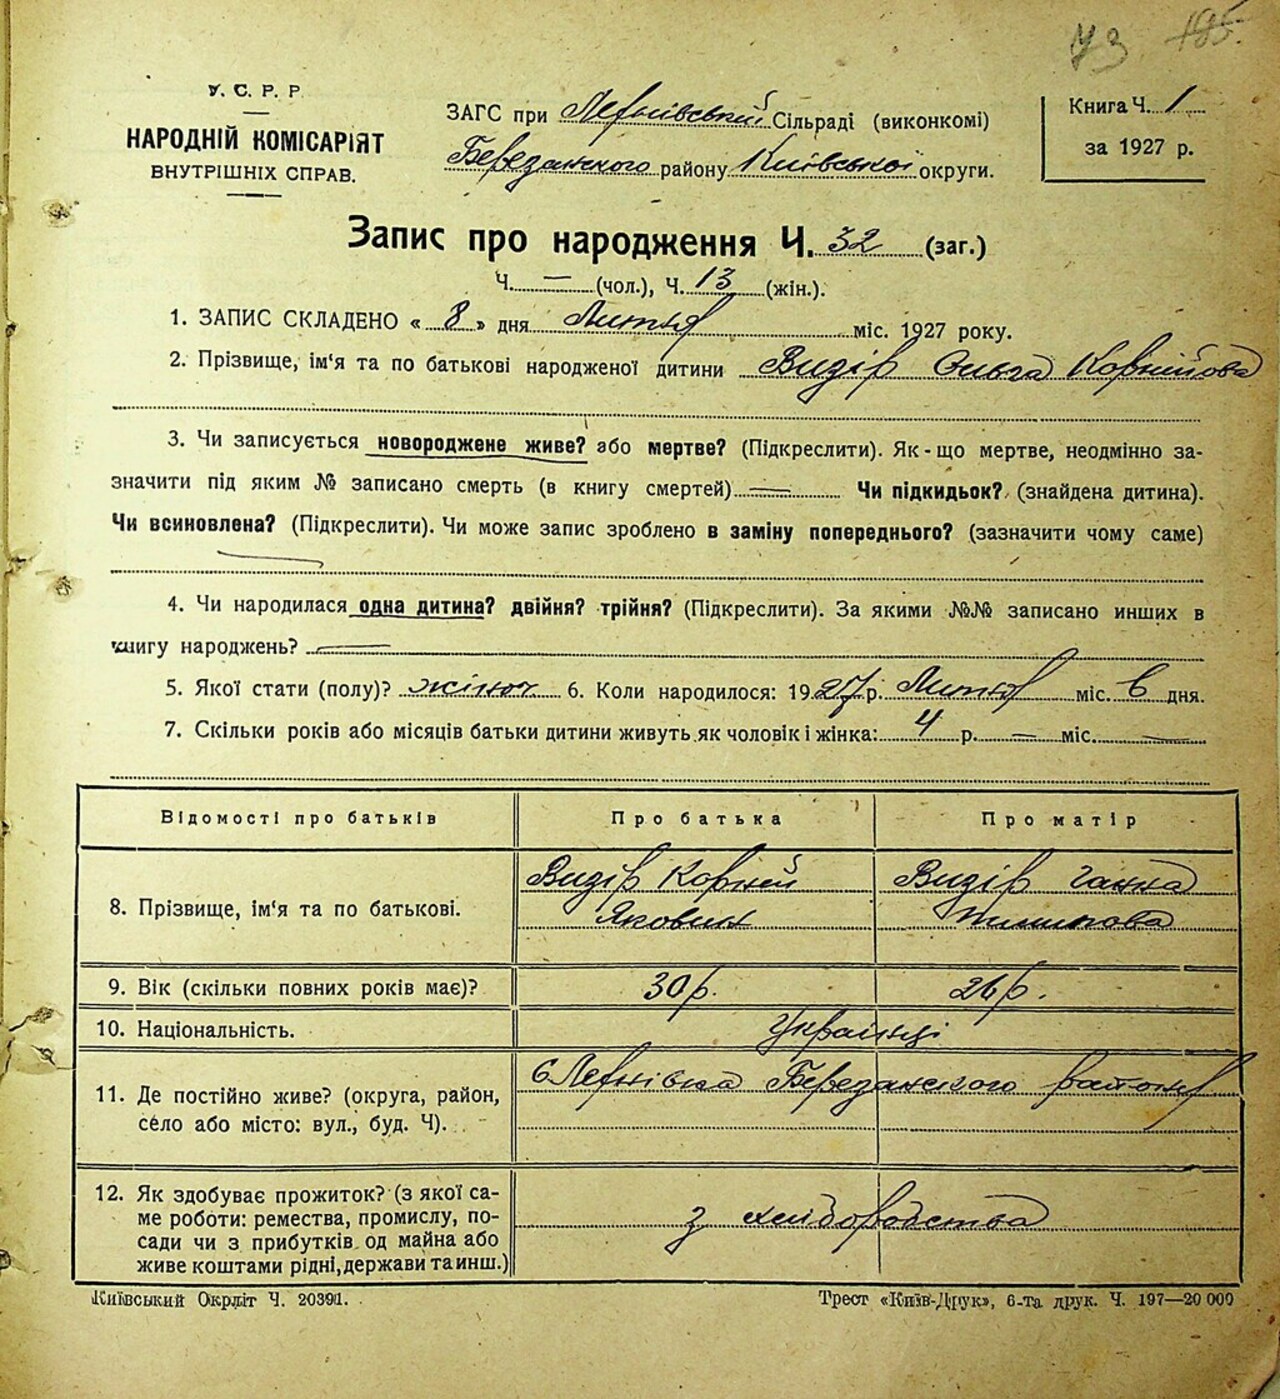 73 185.
У. С. Р. Р.
НАРОДНІЙ КОМІСАРІЯТ
ВНУТРІШНІХ СПРАВ.
ЗАГС при Лехнівській Сільраді (виконкомі)
Березанського району Київської округи.
Книга Ч. 1
за 1927 р.
Запис про народження Ч. 32 (заг.)
Ч. — (чол.), Ч. 13 (жін.).
1. ЗАПИС СКЛАДЕНО « 8 » дня Лютня міс. 1927 року.
2. Прізвище, ім‘я та по батькові народженої дитини Визір Ольга Корнійова
3. Чи записується новороджене живе? або мертве? (Підкреслити). Як-що мертве, неодмінно за-
значити під яким № записано смерть (в книгу смертей) — Чи підкидьок? (знайдена дитина).
Чи всиновлена? (Підкреслити). Чи може запис зроблено в заміну попереднього? (зазначити чому саме)
4. Чи народилася одна дитина? двійня? трійня? (Підкреслити). За якими №№ записано инших в
книгу народжень? —
5. Якої стати (полу)? жіноч 6. Коли народилося: 1927 р. Лютня міс. 6 дня.
7. Скільки років або місяців батьки дитини живуть як чоловік і жінка: 4 р. — міс. —
Відомості про батьків Про батька Про матір
8. Прізвище, ім‘я та по батькові. Визір Корній Визір Ганна
Якович Пилипова
9. Вік (скільки повних років має)? 30 р. 26 р.
10. Національність. Українці
11. Де постійно живе? (округа, район, с Лехнівка Березанського району
село або місто: вул., буд. Ч).
12. Як здобуває прожиток? (з якої са-
ме роботи: ремества, промислу, по- з хліборобства
сади чи з прибутків од майна або
живе коштами рідні, держави та инш.)
Київський Окрліт Ч. 20391. Трест «Київ-Друк», 6-та друк. Ч. 197—20 000